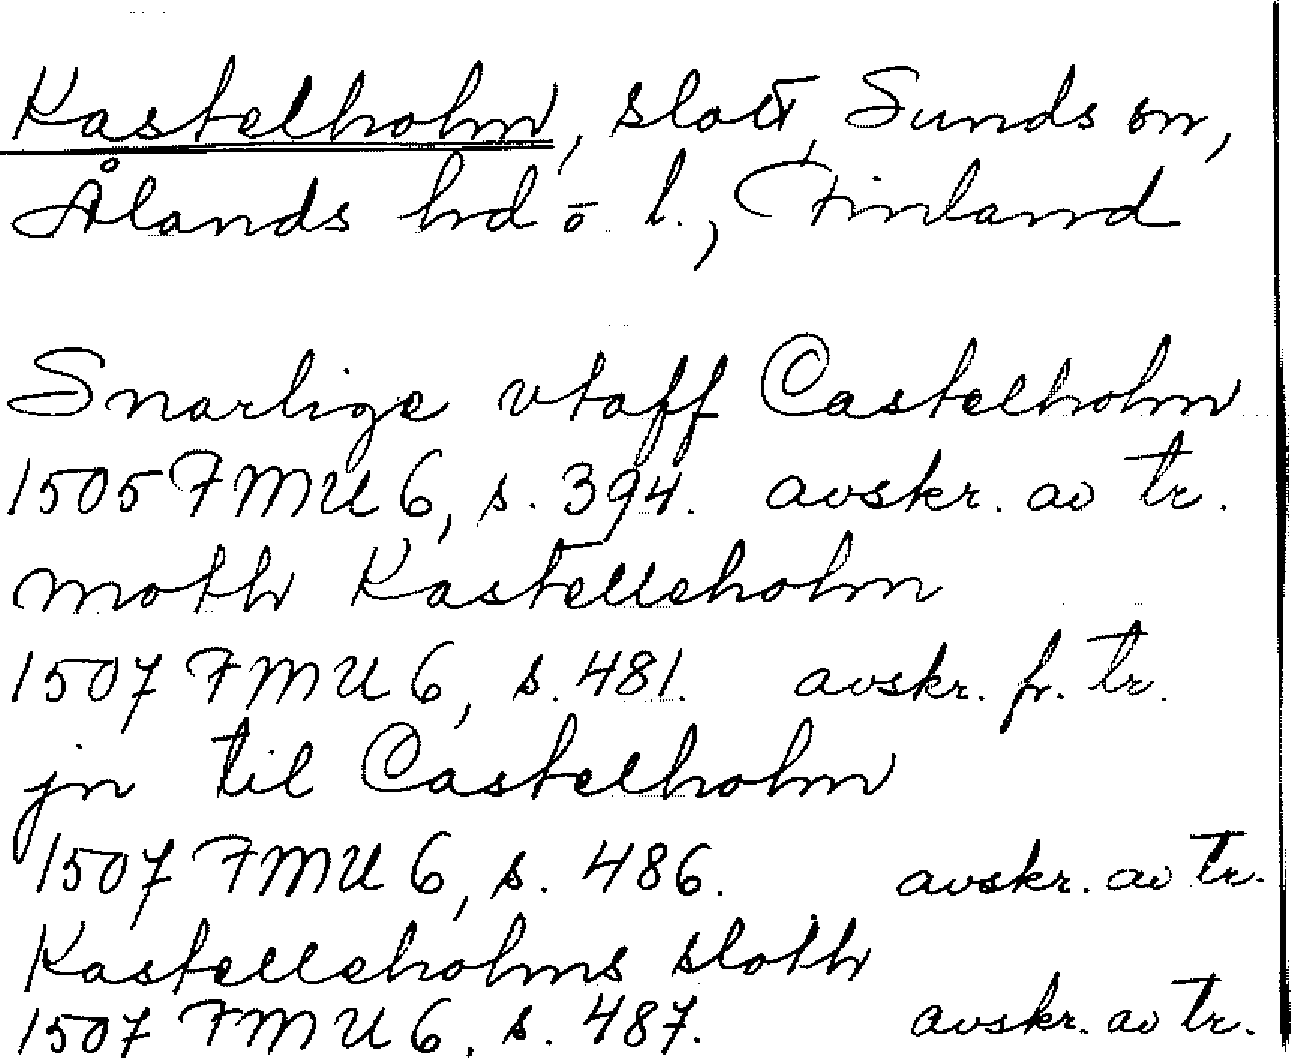 Kastelholm, slott, Sunds sn,
Ålands hrd o l., Finland
Snarlige vtaff Castelholm
1505 FMU 6, s. 394. avskr. av tr.
moth Kastelleholm
1507 FMU 6, s. 481. avskr. fr. tr.
jn til Castelholm
1507 FMU 6, s. 486. avskr. av tr.
Kastelleholms sloth
1507 FMU 6, s. 487. avskr. av tr.